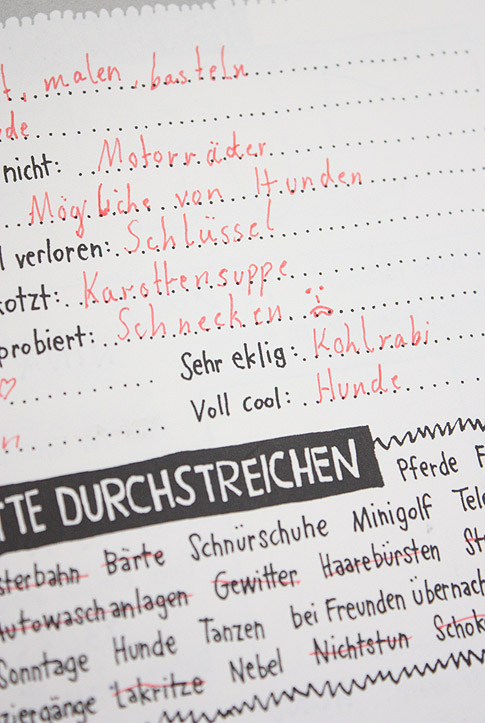 malen, basteln
nicht: Motorräder
Mögliche von Hunden
verloren: Schlüssel
kotzt: Karottensuppe
probiert: Schnecken
Sehr eklig: Kohlrabi
Voll cool: Hunde
DURCHSTREICHEN
Pferde
Bärte Schnürschuhe Minigolf
Autowaschanlagen Gewitter Haarebürsten
Sonntage Hunde Tanzen bei Freunden
Lakritze Nebel Nichtstun